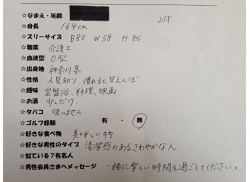 ☆なまえ・年齢 23才
☆身長 164cm
☆スリーサイズ B80 W58 H86
☆職業 介護士
☆血液型 O型
☆出身地 神奈川県
☆性格 人見知り、慣れると甘えんぼ
☆趣味 岩盤浴、料理、映画
☆お酒 少しだけ
☆タバコ 吸いません
☆ゴルフ経験 有・無
☆好きな食べ物 美味しい物
☆好きな男性のタイプ 清潔感のあるさわやかな人
☆似ている?有名人
☆男性会員さまへメッセージ 一緒に楽しい時間を過ごしてください。